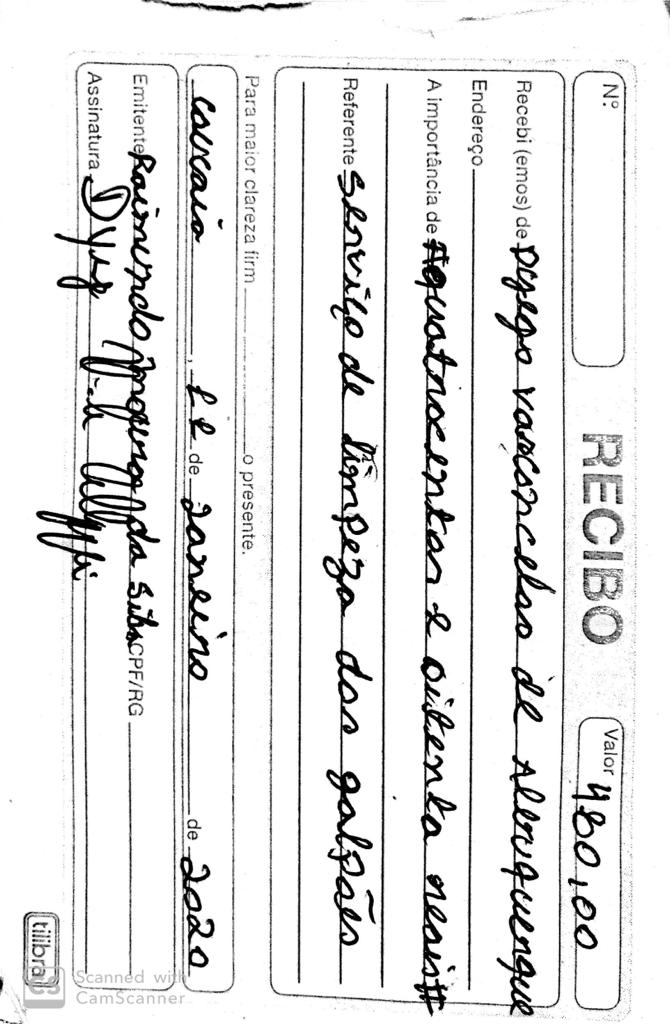 Nº
RECIBO
Valor 480,00
Recebi (emos) de Dyego vasconcelos de Albuquerque
Endereço
A importância de quatrocentos e oitenta reais
Referente Serviço de limpeza dos galpões
Para maior clareza firm o presente.
caucaia, de Janeiro de 2020
Emitente Raimundo da Silva CPF/RG
Assinatura
tilibra
CS Scanned with
CamScanner